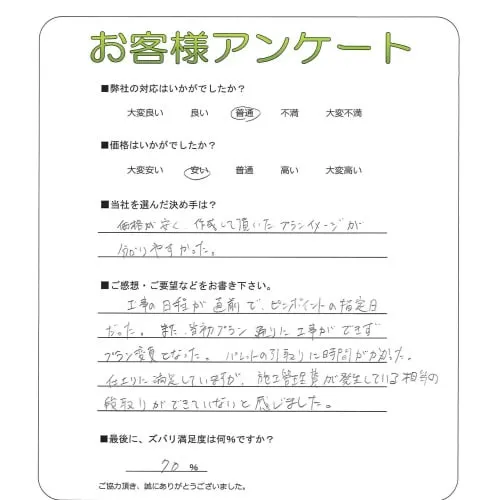 お客様アンケート
■弊社の対応はいかがでしたか？
大変良い 良い 普通 不満 大変不満
■価格はいかがでしたか？
大変安い 安い 普通 高い 大変高い
■当社を選んだ決め手は？
価格が安く、作成して頂いたプランイメージが
分かりやすかった。
■ご感想・ご要望などをお書き下さい。
工事の日程が直前で、ピンポイントの指定日
だった。また、当初プラン通りに工事ができず
プラン変更となった。パレットの引取りに時間がかかった。
仕上りに満足していますが、施工管理費が発生している相当の
段取りができていないと感じました。
■最後に、ズバリ満足度は何%ですか？
70 %
ご協力頂き、誠にありがとうございました。